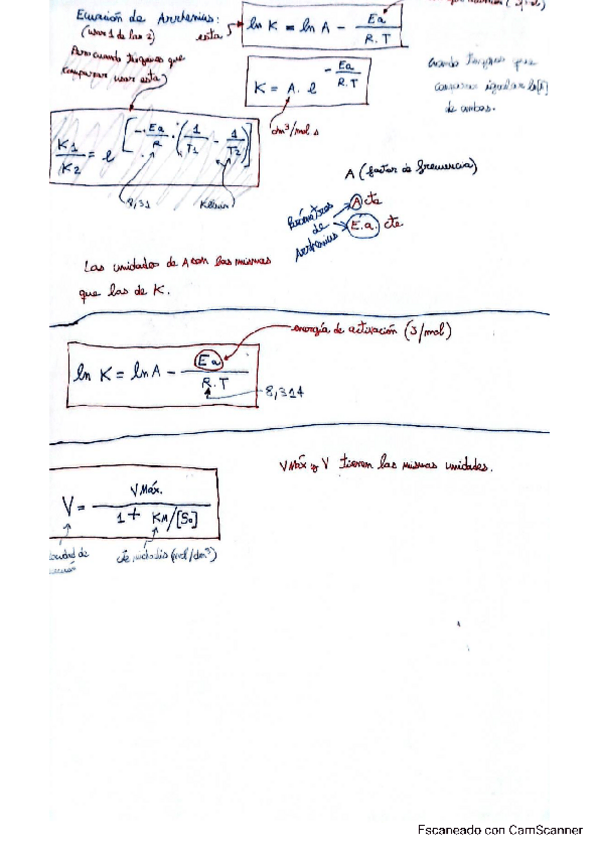 Ecuación de Arrhenius:
(usar 1 de las 2)
esta
ln K = ln A - Ea / R.T
Para cuando tengamos que
comparar usar esta)
K = A. e^(-Ea / R.T)
dm³/mol s
Cuando tengas que
igualar
de ambas.
K1/K2 = e^[-Ea/R · (1/T1 - 1/T2)]
8,31
Kelvin
A (factor de frecuencia)
Parámetros
de
Arrhenius
A cte
E.a. cte
Las unidades de A son las mismas
que las de K.
energía de activación (J/mol)
ln K = ln A - Ea / R.T
8,314
VMáx y V tienen las mismas unidades.
V = VMáx. / 1 + KM/[S0]
cte (mol/dm³)
Escaneado con CamScanner